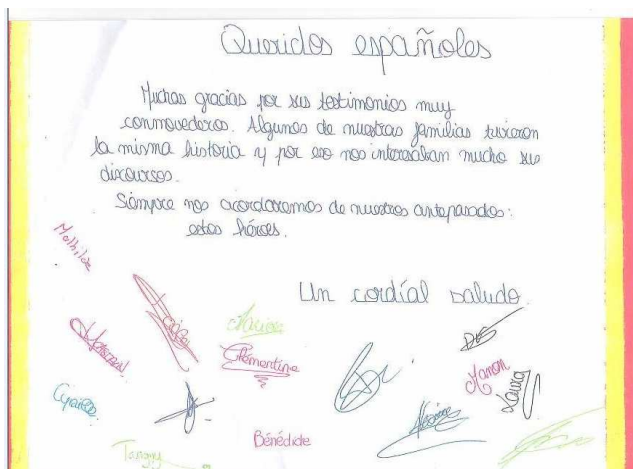 Queridos españoles
Muchas gracias por sus testimonios muy
conmovederos. Algunos de nuestras familias tuvieron
la misma historia y por eso nos interesaban mucho sus
discourses.
Siempre nos acordaremos de nuestros antepasados:
estos héroes.
Un cordial saludo.
Mathilde
Clémentine
Manon
Laura
Tanguy
Bénédicte